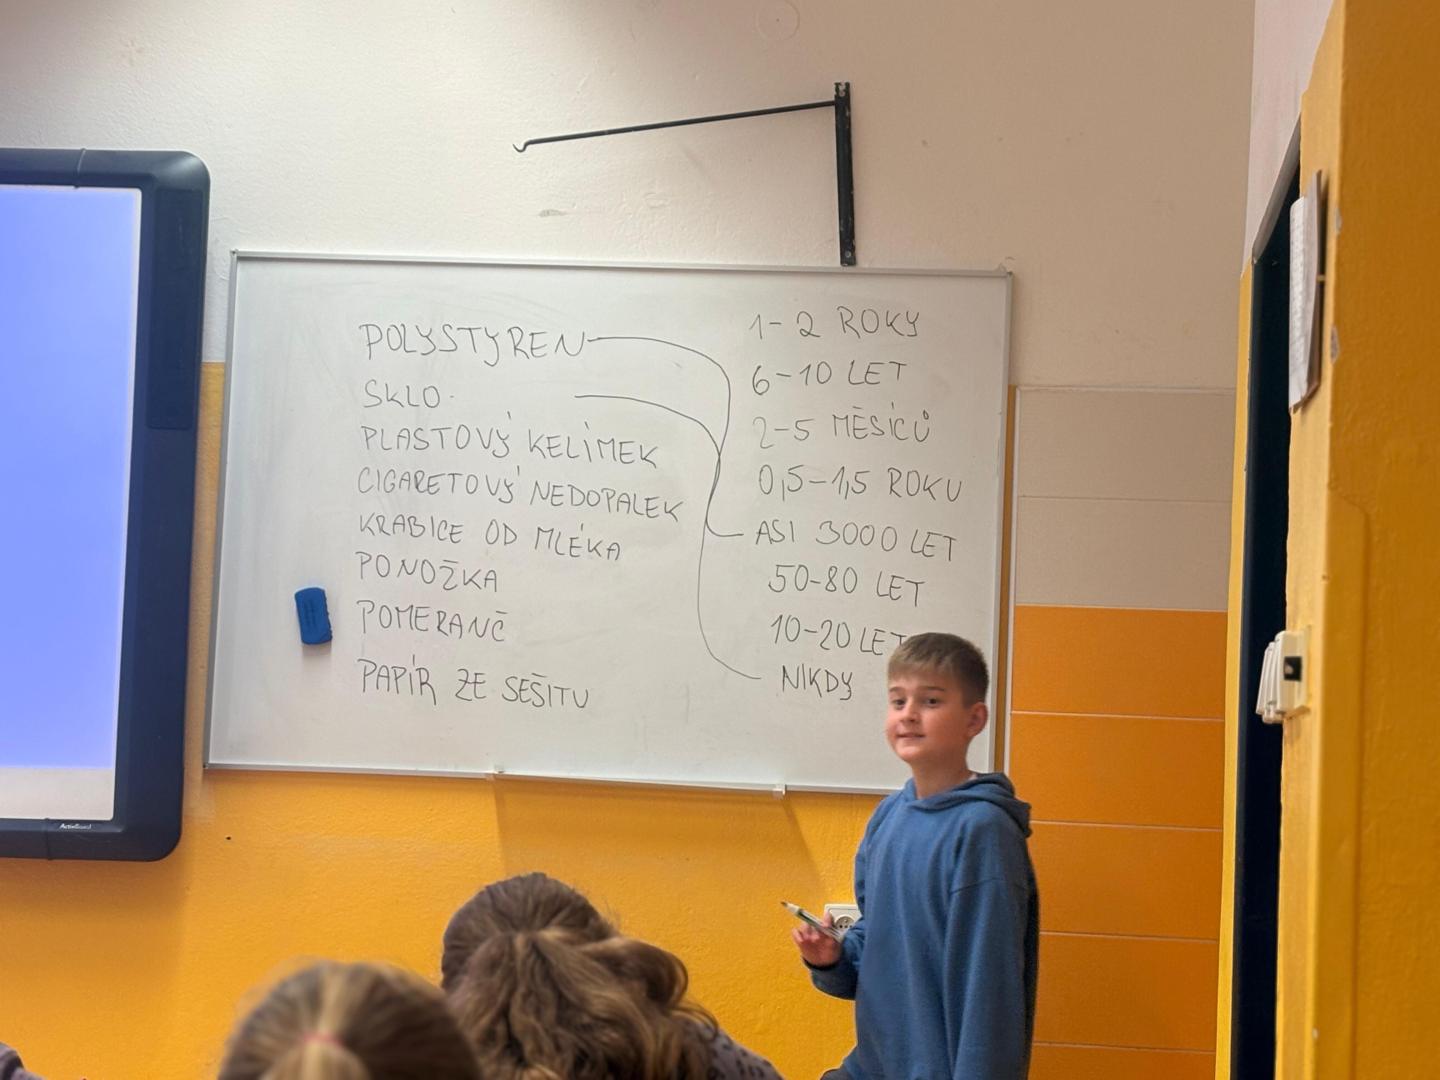 POLYSTYREN
SKLO
PLASTOVÝ KELÍMEK
CIGARETOVÝ NEDOPALEK
KRABICE OD MLÉKA
PONOŽKA
POMERANČ
PAPÍR ZE SEŠITU
1-2 ROKY
6-10 LET
2-5 MĚSÍCŮ
0,5-1,5 ROKU
ASI 3000 LET
50-80 LET
10-20 LET
NIKDY
ActivBoard